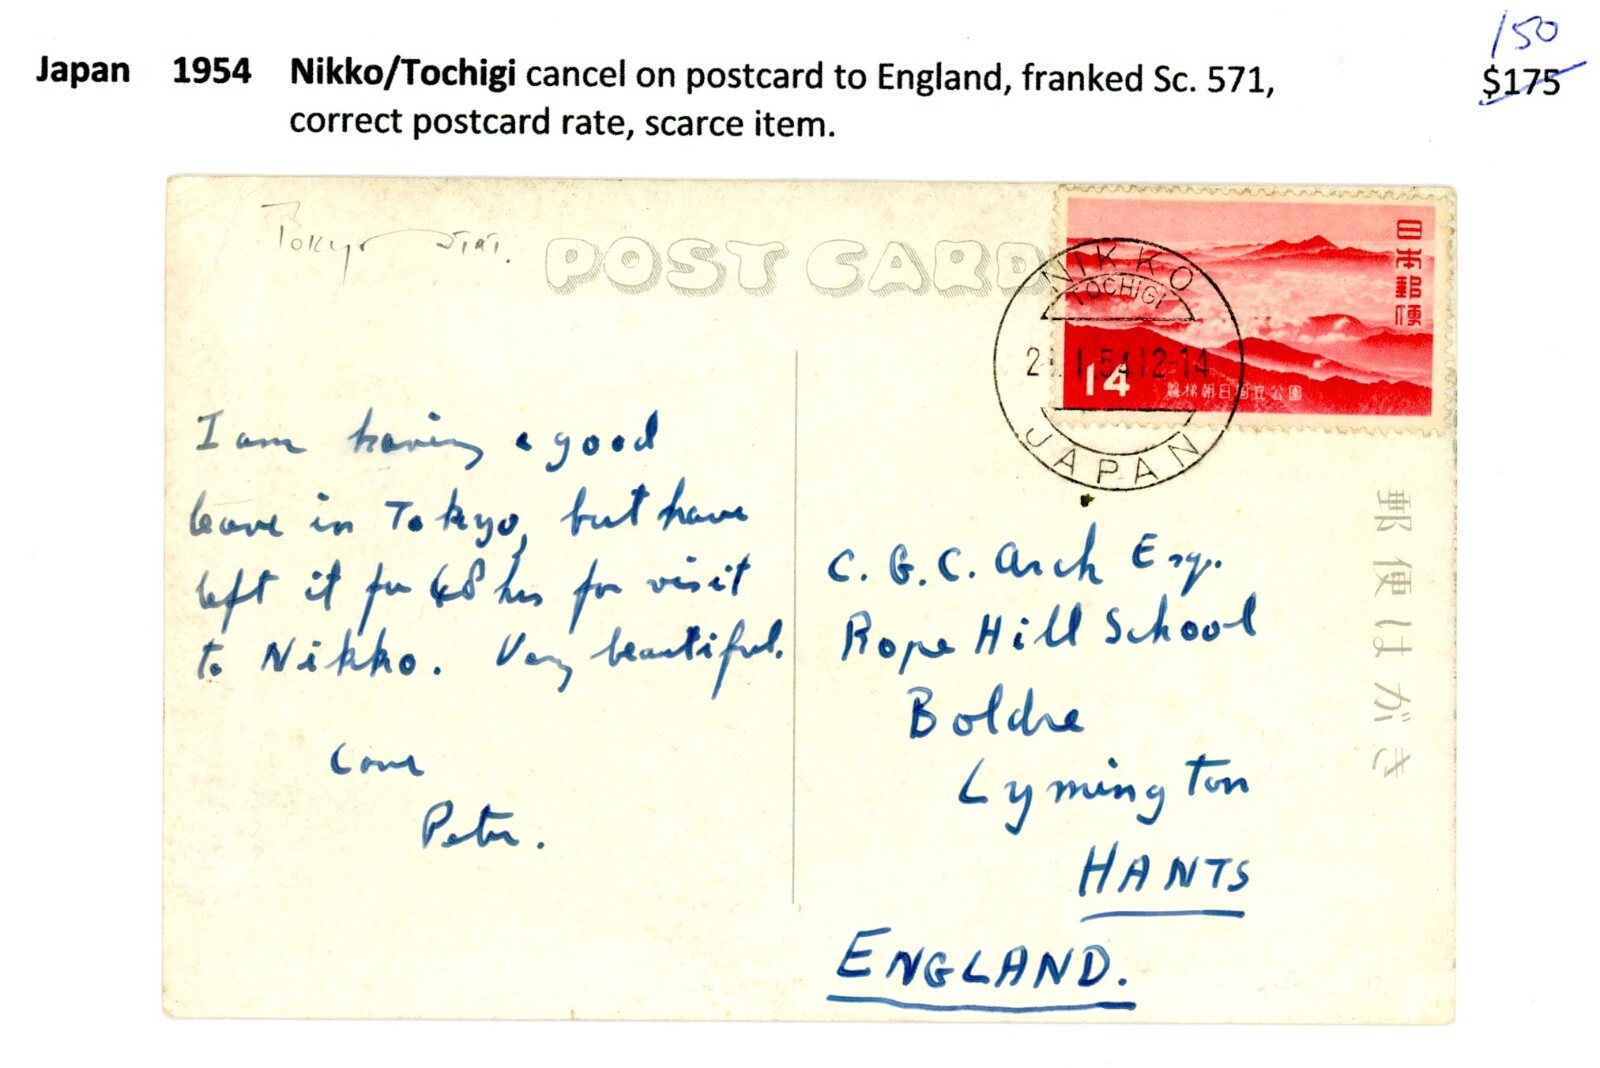 150
Japan 1954 Nikko/Tochigi cancel on postcard to England, franked Sc. 571, $175
correct postcard rate, scarce item.
Tokyo
POST CARD
日本郵便
NIKKO
TOCHIGI
I.54 12-14
14
磐梯朝日国立公園
JAPAN
郵便はがき
I am having a good
leave in Tokyo, but have
left it for 48 hrs for visit
to Nikko. Very beautiful.
Love
Peter.
C. G. C. Arch Esq.
Rope Hill School
Boldre
Lymington
HANTS
ENGLAND.